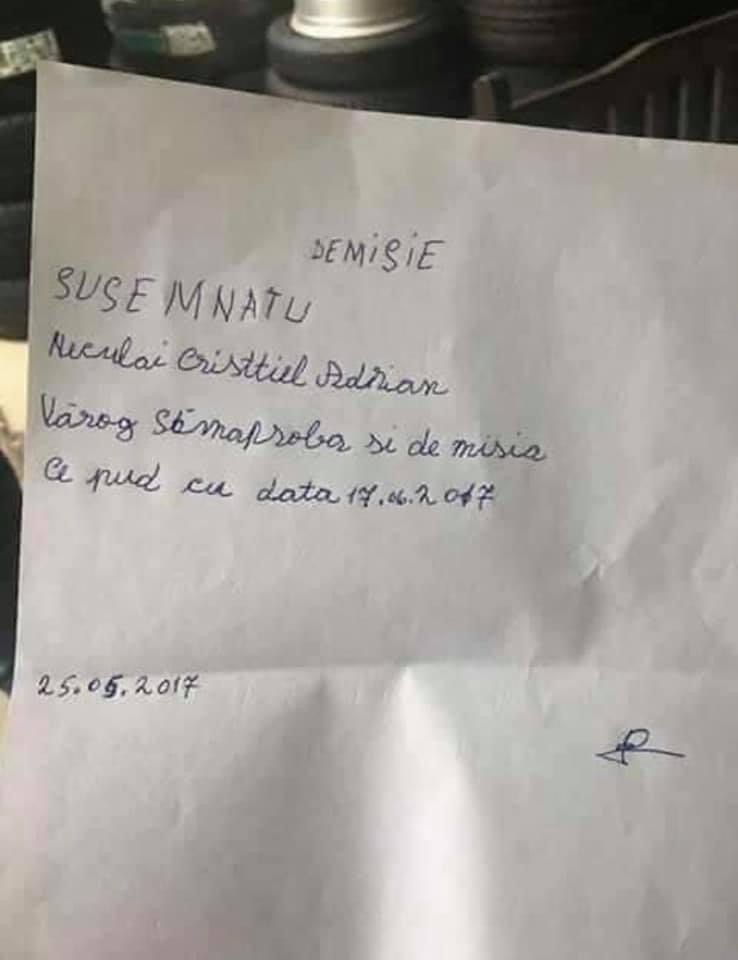 DEMiSiE
SUSEMNATU
Neculai Cristtiel Adrian
Várog Sémaproba si de misia
Ce pud cu data 17.06.2017
25.05.2017